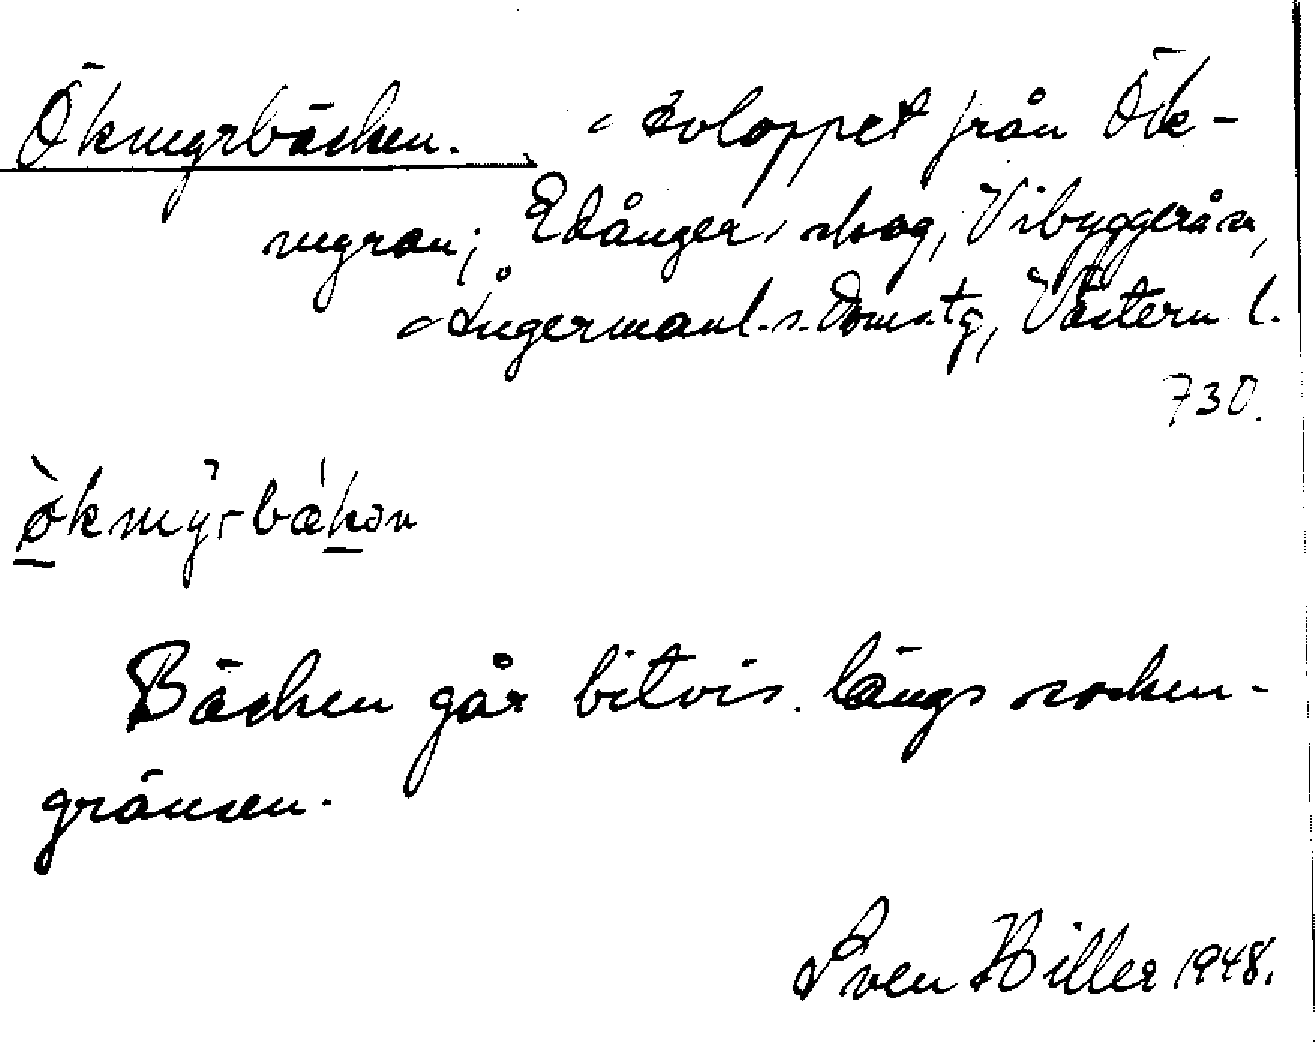 Ökmyrbäcken. Avloppet från Ök-
myran; Edånger, skog, Vibyggerå sn,
Ångermanl. s. doms. tg, Västern l.
730.
ò̱kmỳrbækən
Bäcken går bitvis längs socken-
gränsen.
Sven Hiller 1948.